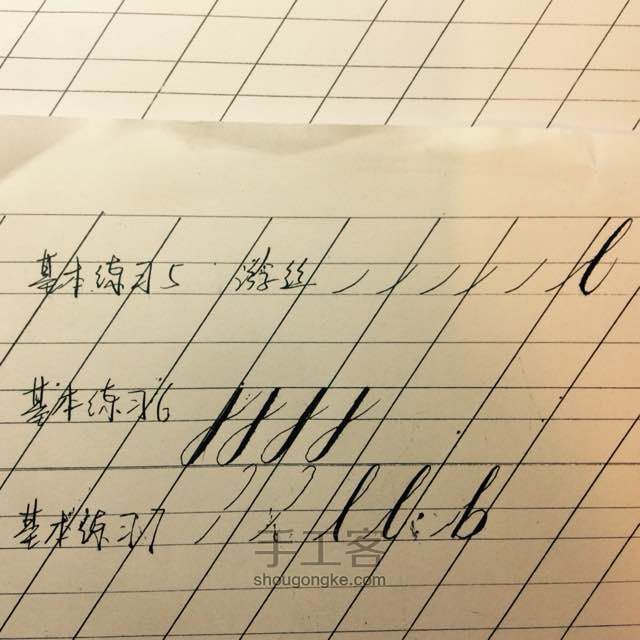 基本练习5 游丝 l
基本练习6
基本练习7 l l : b
手工客
shougongke.com